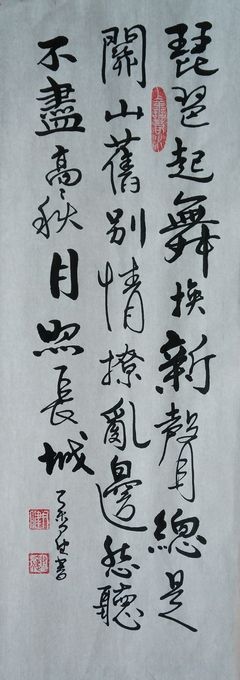 琵琶起舞換新聲總是
關山舊別情撩亂邊愁聽
不盡高高秋月照長城